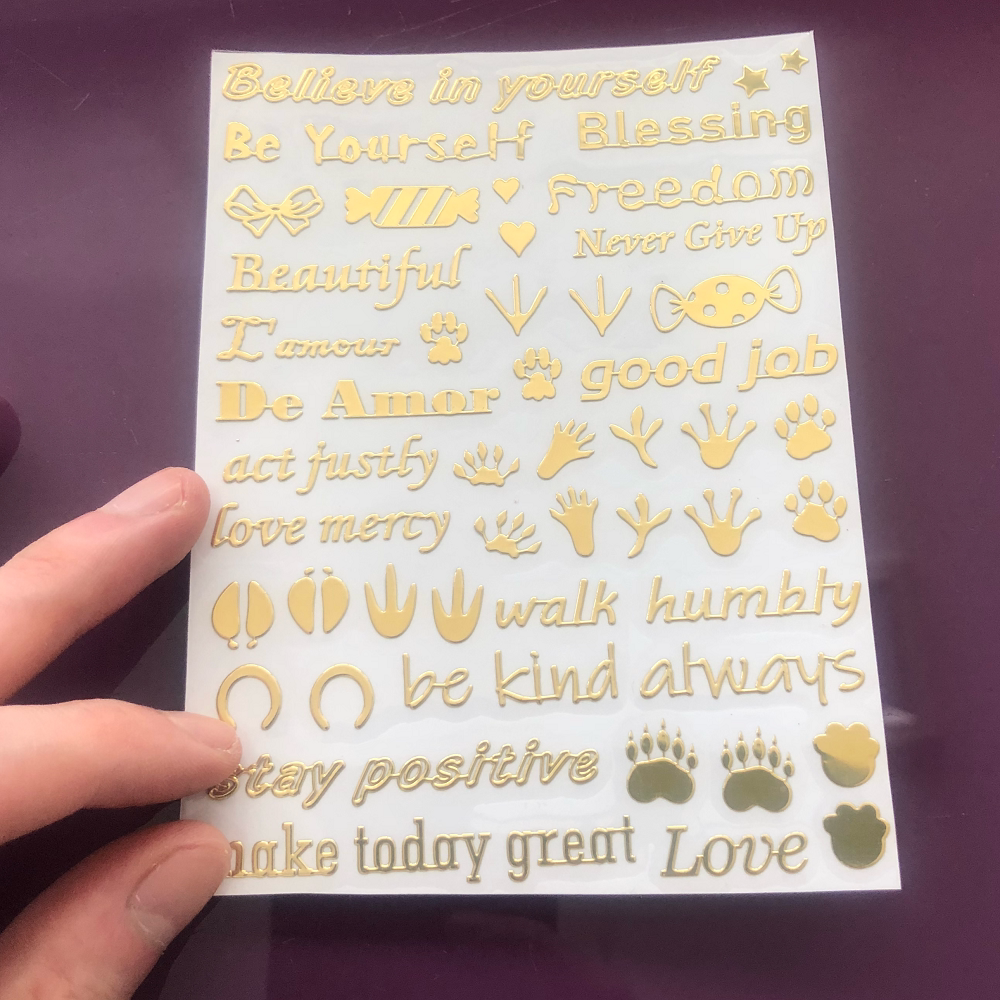 Believe in yourself
Be Yourself
Blessing
Freedom
Never Give Up
Beautiful
L'amour
good job
De Amor
act justly
love mercy
walk humbly
be kind always
stay positive
make today great
Love